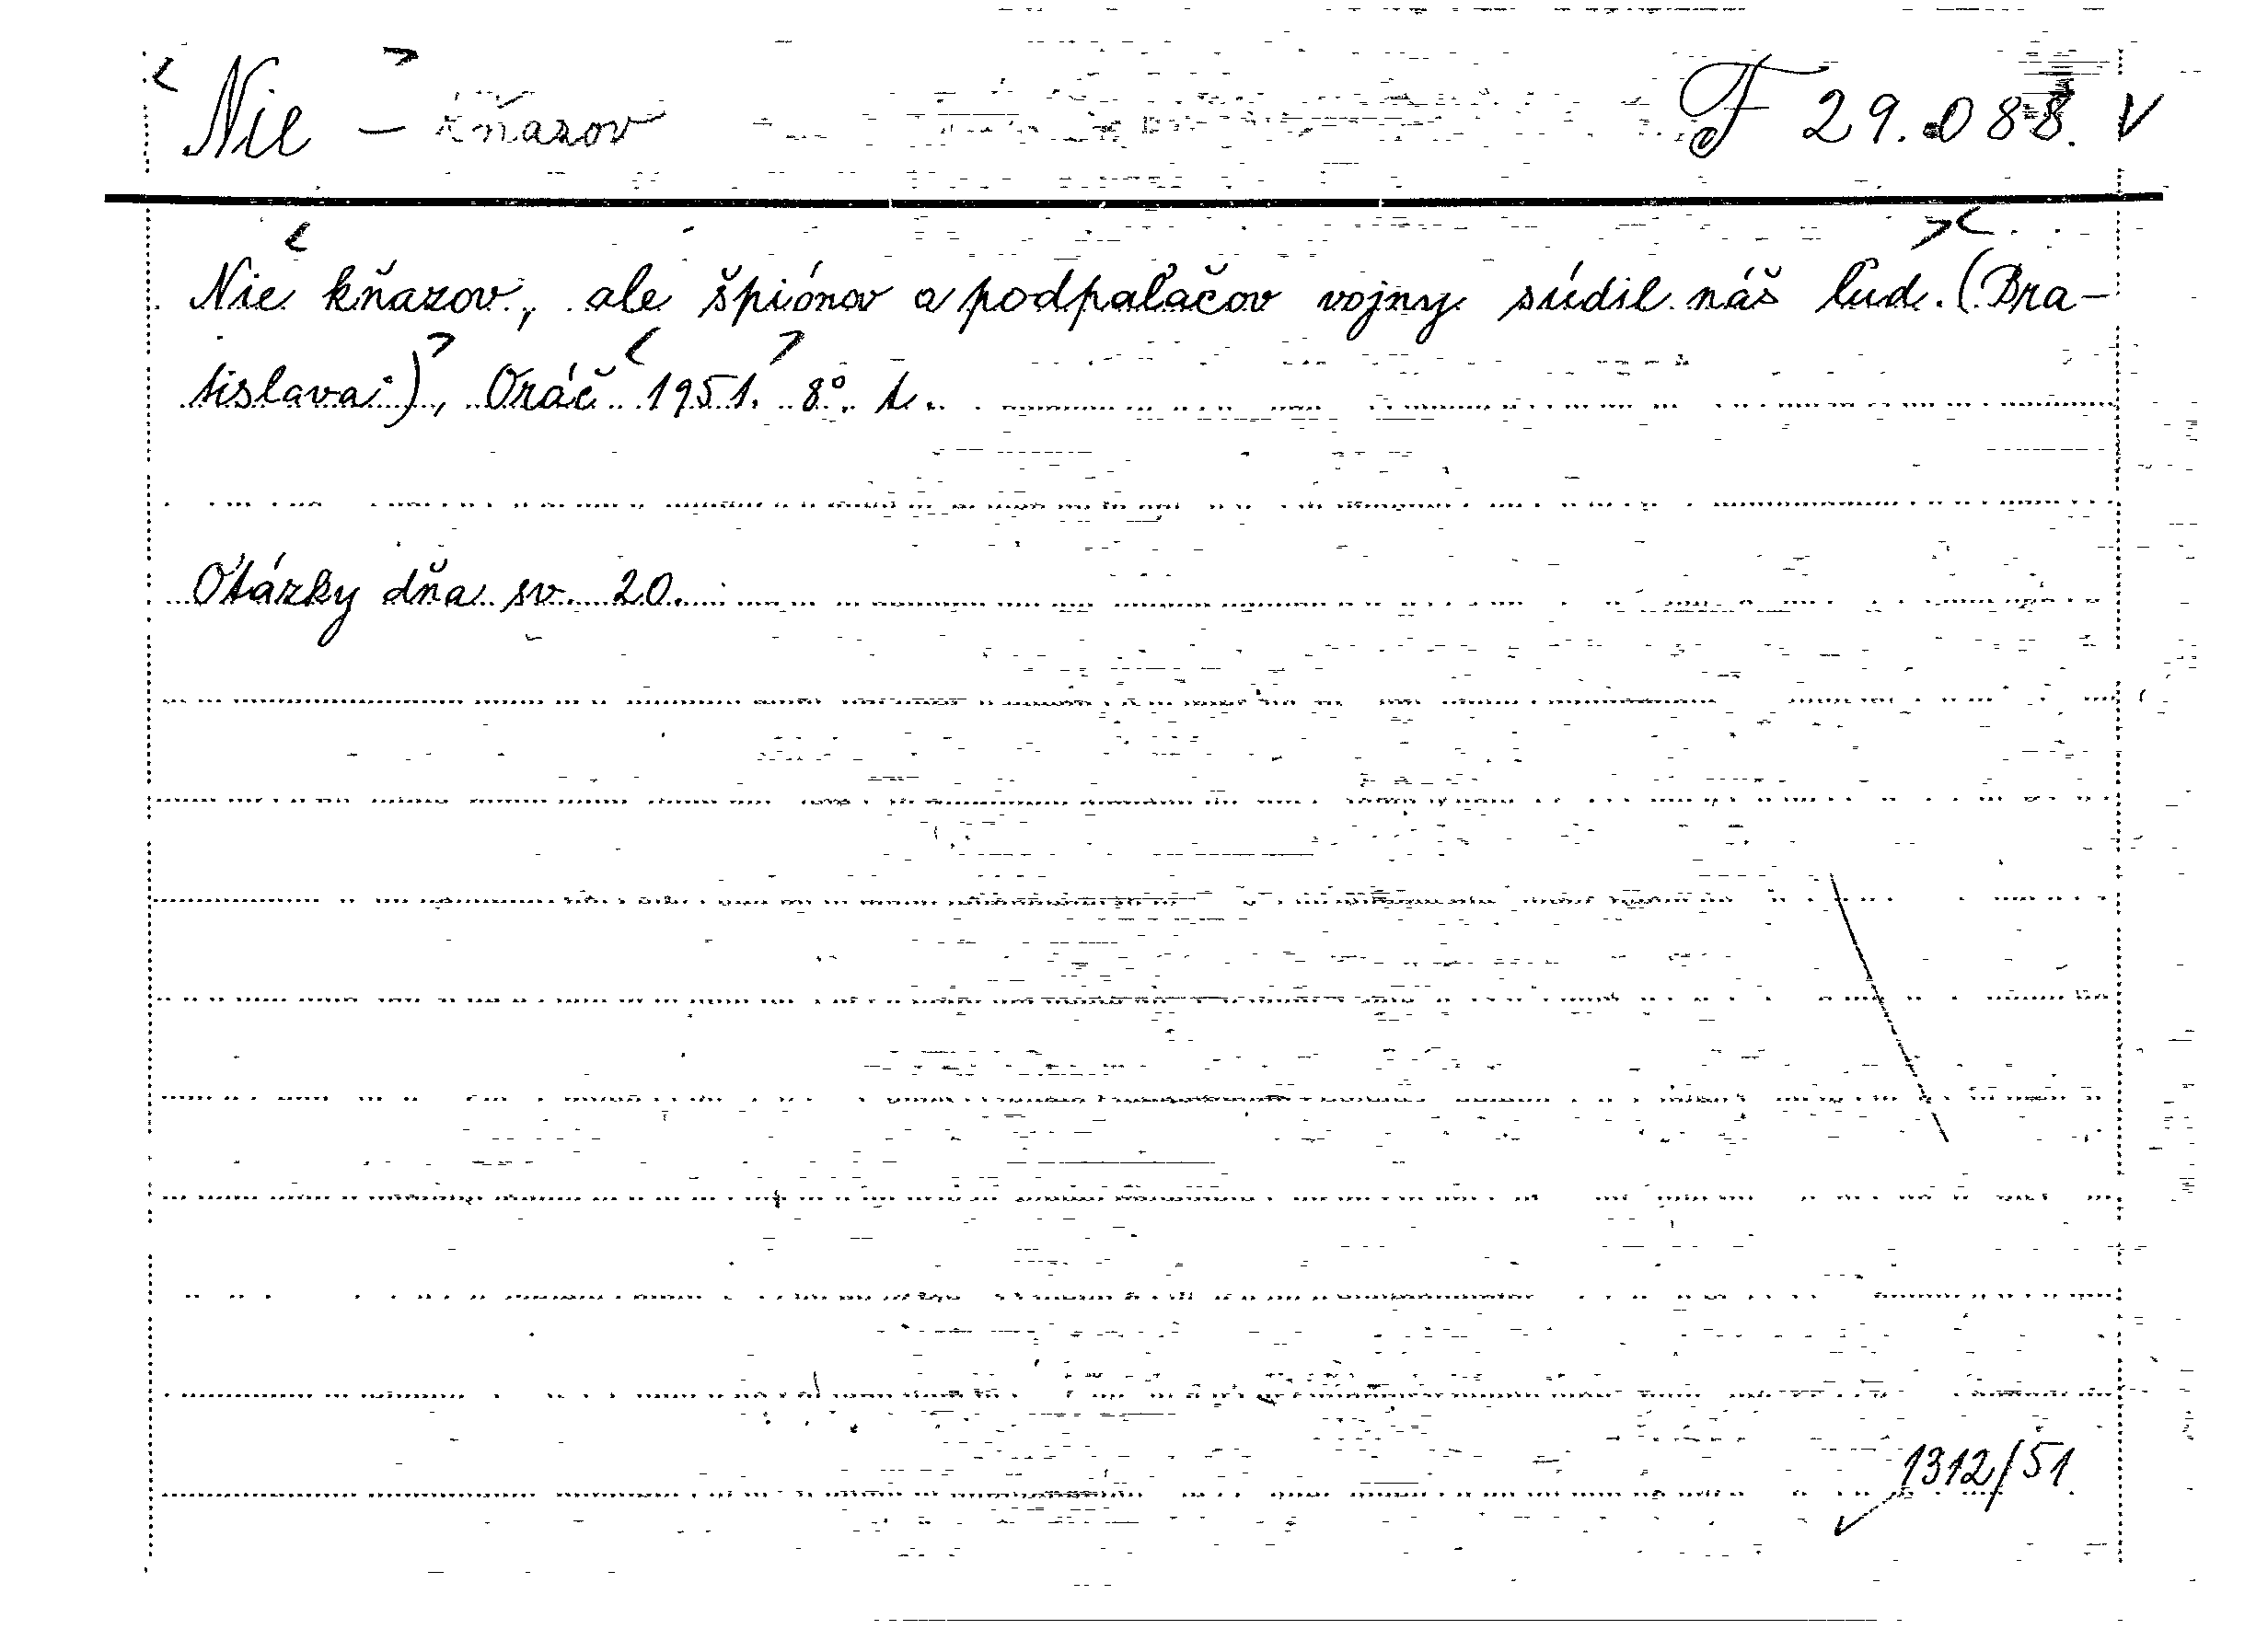 Nie - kňazov F 29.088. V
Nie kňazov, ale špiónov a podpaľačov vojny súdil náš ľud. (Bra-
tislava:), Oráč 1951. 8°. 1.
Otázky dňa sv. 20.
1312/51.